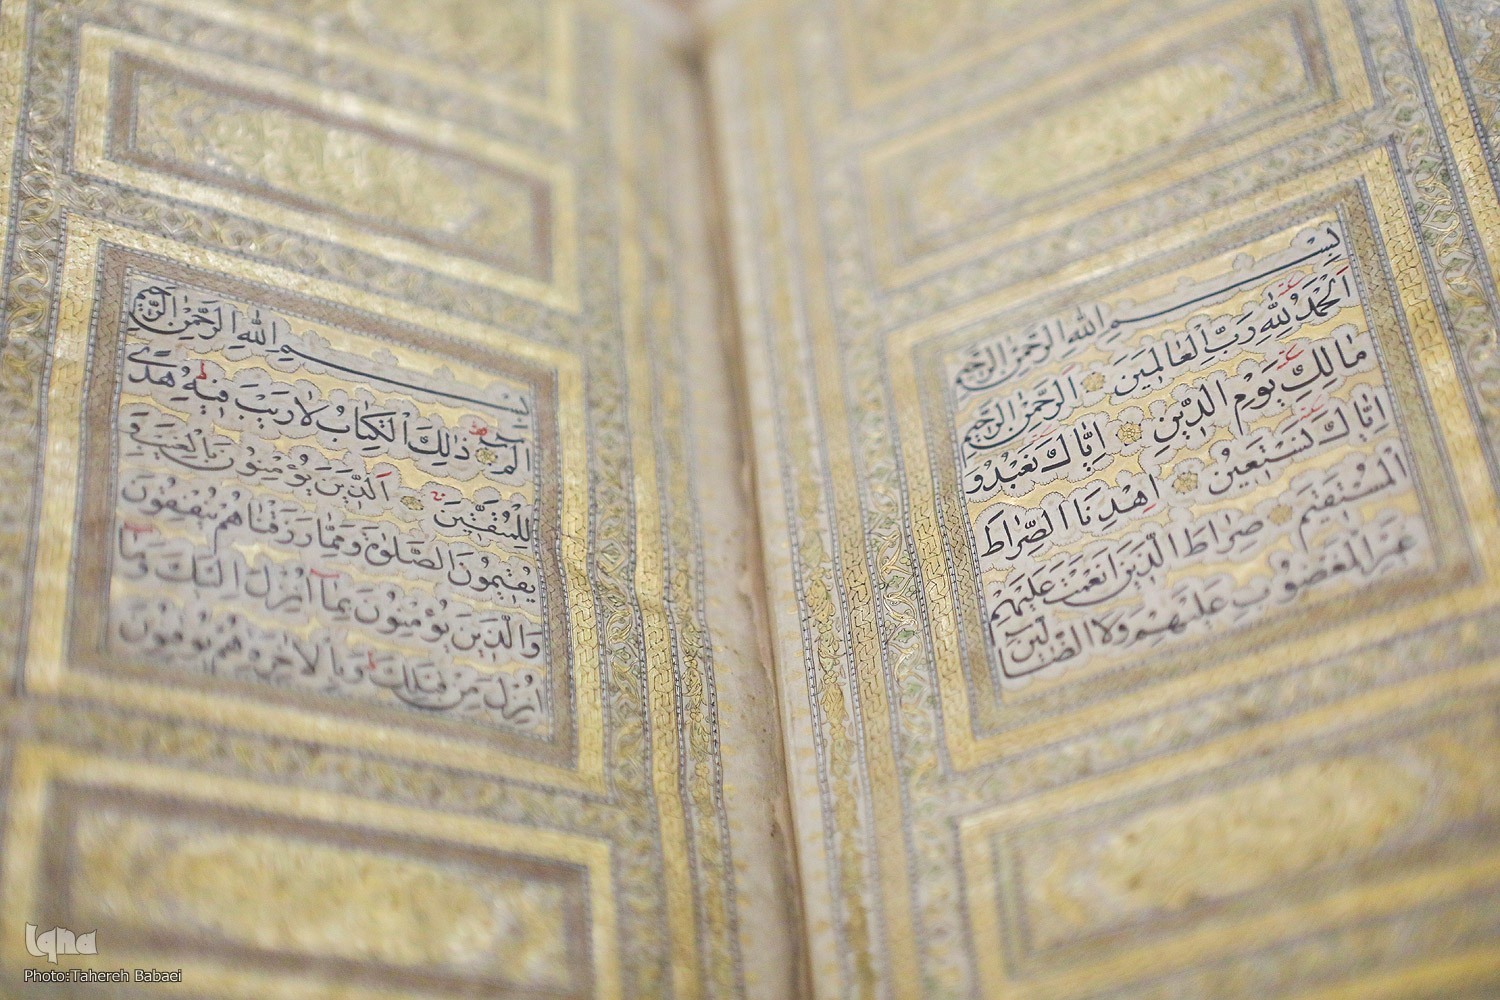 بِسْمِ اللهِ الرَّحْمٰنِ الرَّحِيمِ
اَلْحَمْدُ لِلّٰهِ رَبِّ الْعَالَمِينَ الرَّحْمٰنِ الرَّحِيمِ
مَالِكِ يَوْمِ الدِّينِ اِيَّاكَ نَعْبُدُ وَ
اِيَّاكَ نَسْتَعِينُ اِهْدِنَا الصِّرَاطَ
الْمُسْتَقِيمَ صِرَاطَ الَّذِينَ اَنْعَمْتَ عَلَيْهِمْ
غَيْرِ الْمَغْضُوبِ عَلَيْهِمْ وَلَا الضَّالِّينَ
بِسْمِ اللهِ الرَّحْمٰنِ الرَّحِيمِ
الم ذٰلِكَ الْكِتَابُ لَا رَيْبَ فِيهِ هُدًى
لِلْمُتَّقِينَ اَلَّذِينَ يُؤْمِنُونَ بِالْغَيْبِ وَ
يُقِيمُونَ الصَّلٰوةَ وَمِمَّا رَزَقْنَاهُمْ يُنْفِقُونَ
وَالَّذِينَ يُؤْمِنُونَ بِمَا اُنْزِلَ اِلَيْكَ وَمَا
اُنْزِلَ مِنْ قَبْلِكَ وَبِالْاٰخِرَةِ هُمْ يُوقِنُونَ
Iqna
Photo:Tahereh Babaei